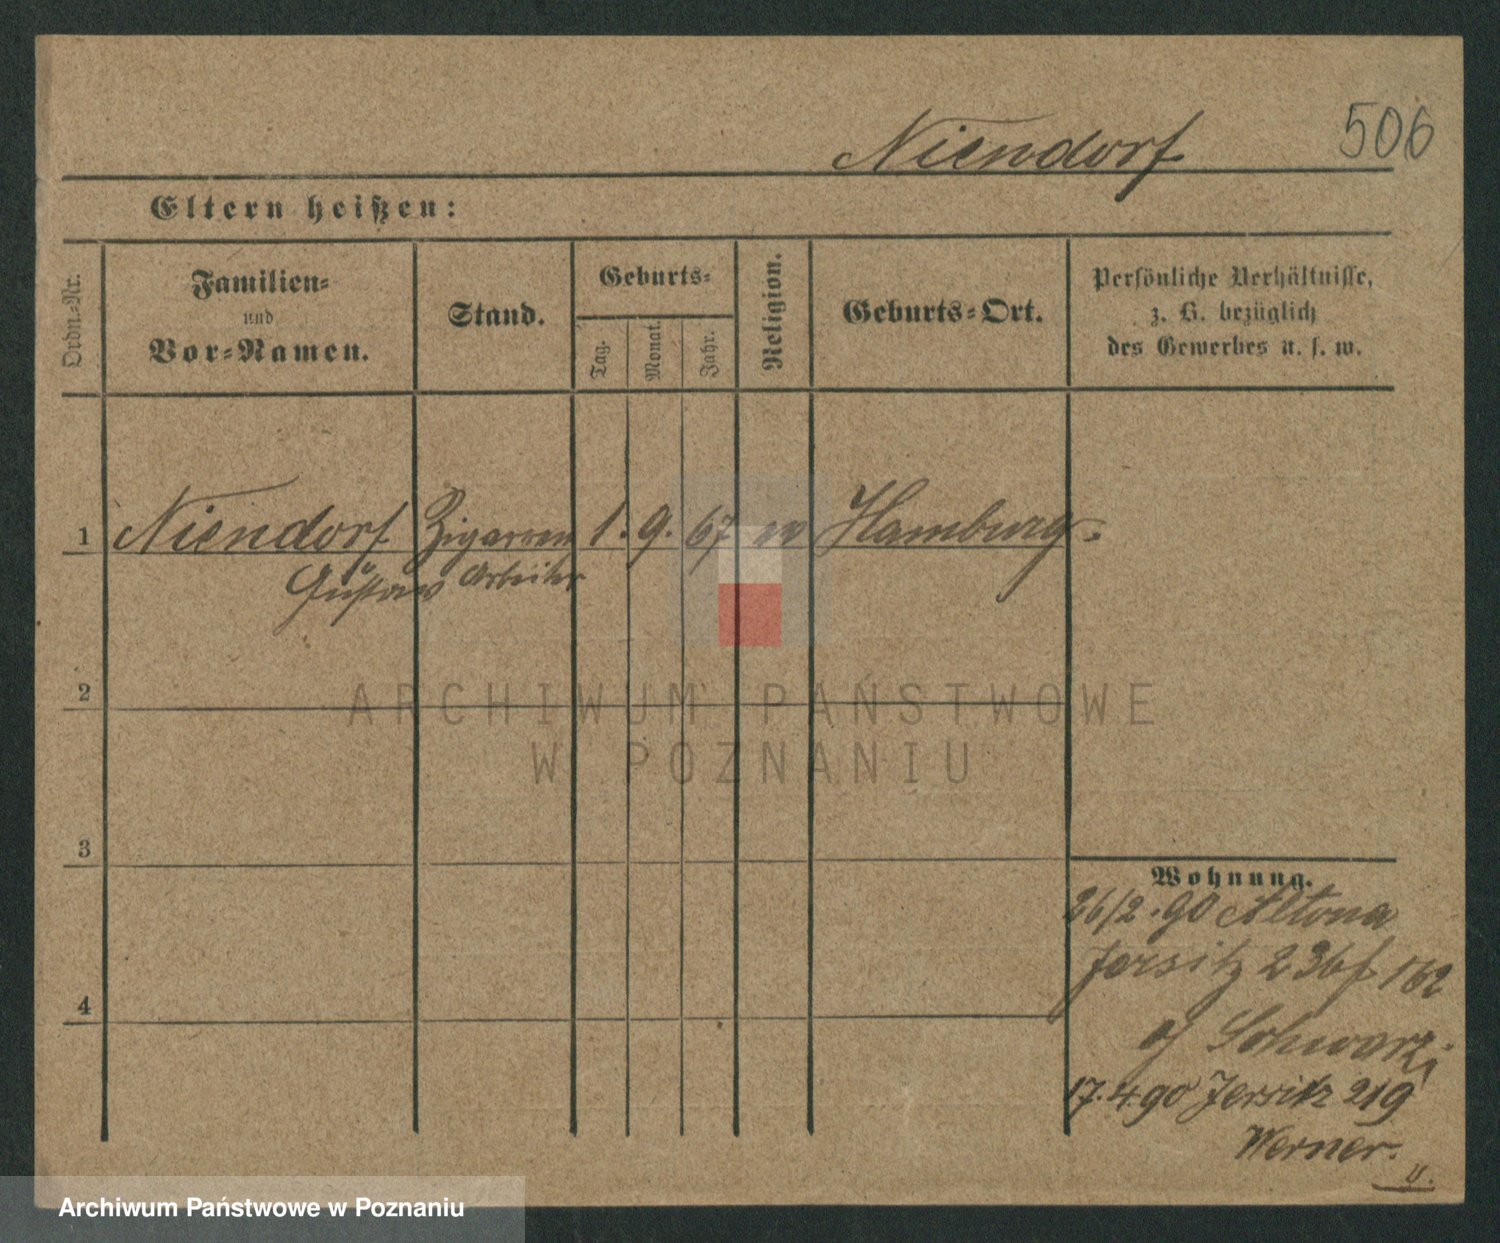 506
Niendorf
Eltern heißen:
Ordn.-Nr.
Familien-
und
Vor-Namen.
Stand.
Geburts-
Tag.
Monat.
Jahr.
Religion.
Geburts-Ort.
Persönliche Verhältnisse,
z. B. bezüglich
des Gewerbes u. s. w.
1 Niendorf Zigarren 1. 9. 67 ev Hamburg.
Gustav Arbeiter
2
ARCHIWUM PAŃSTWOWE
W POZNANIU
3
Wohnung.
26/2. 90 Altona
Jersitz 236f 162
4
Schwarz
17. 4. 90 Jersitz 219
Werner.
Archiwum Państwowe w Poznaniu